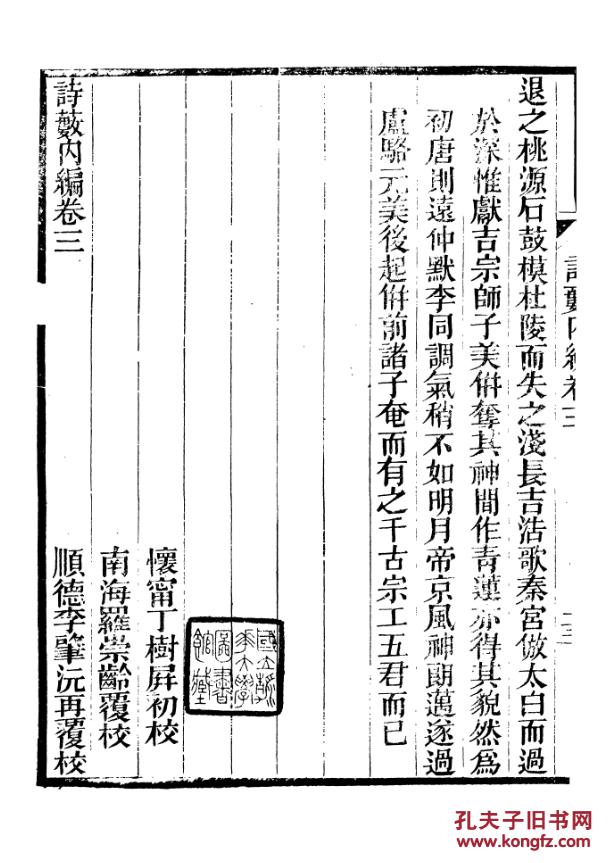 詩藪內編卷三
退之桃源石鼓模杜陵而失之淺長吉浩歌秦宮倣太白而過
於深惟獻吉宗師子美倂奪其神間作青蓮亦得其貌然爲
初唐則遠仲默李同調氣稍不如明月帝京風神朗邁遂過
盧駱元美後起倂前諸子奄而有之千古宗工五君而已
國立
大學
圖書
館
懷甯丁樹屏初校
南海羅崇齡覆校
順德李肇沅再覆校
詩藪內編卷三
孔夫子旧书网
www.kongfz.com